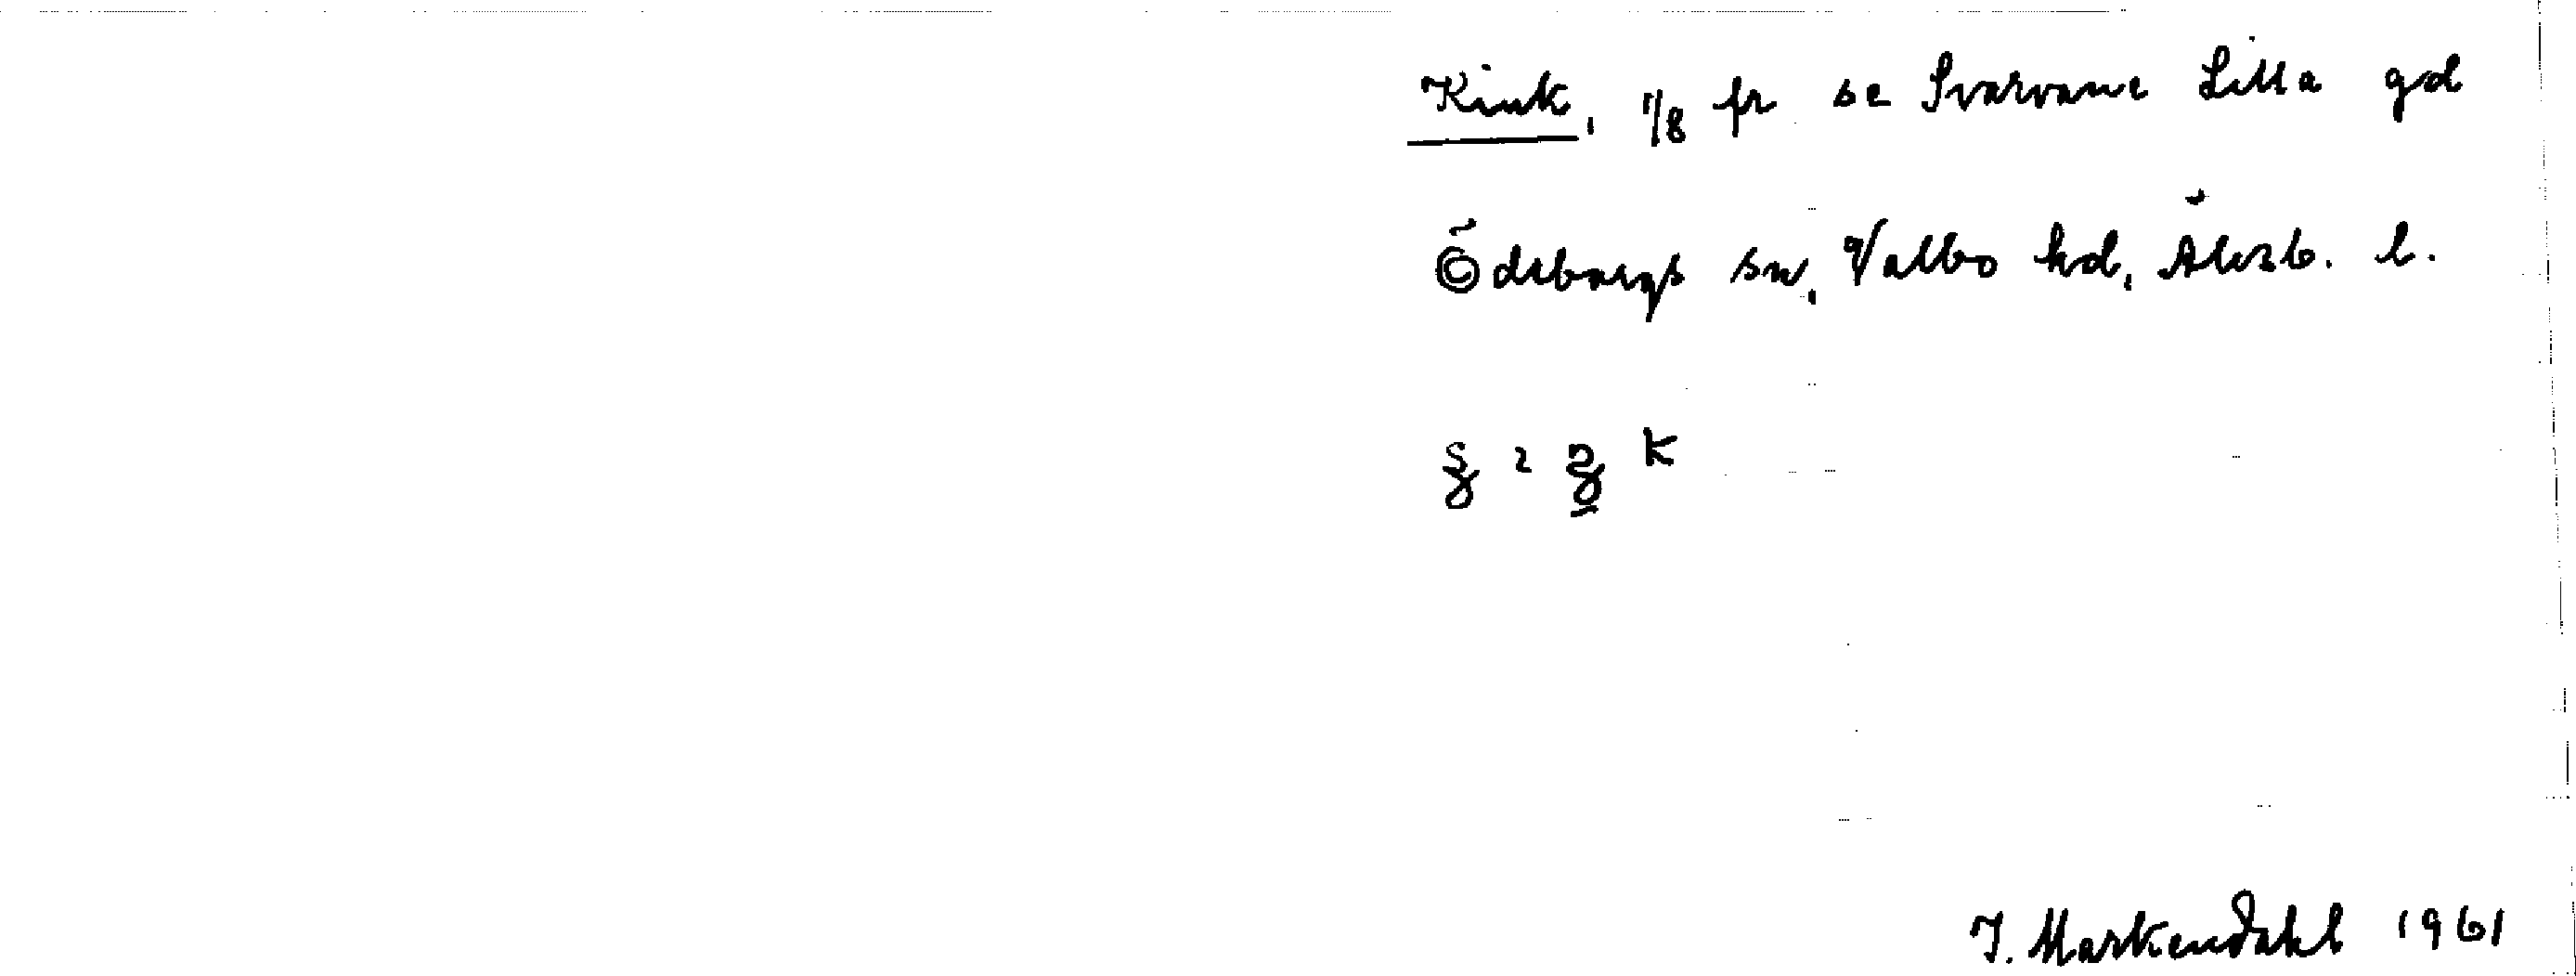 Kink, 1/8 fr se Svarvane Lilla gd
Ödeborgs sn, Valbo hd, Älvsb. l.
J. Markendahl 1961